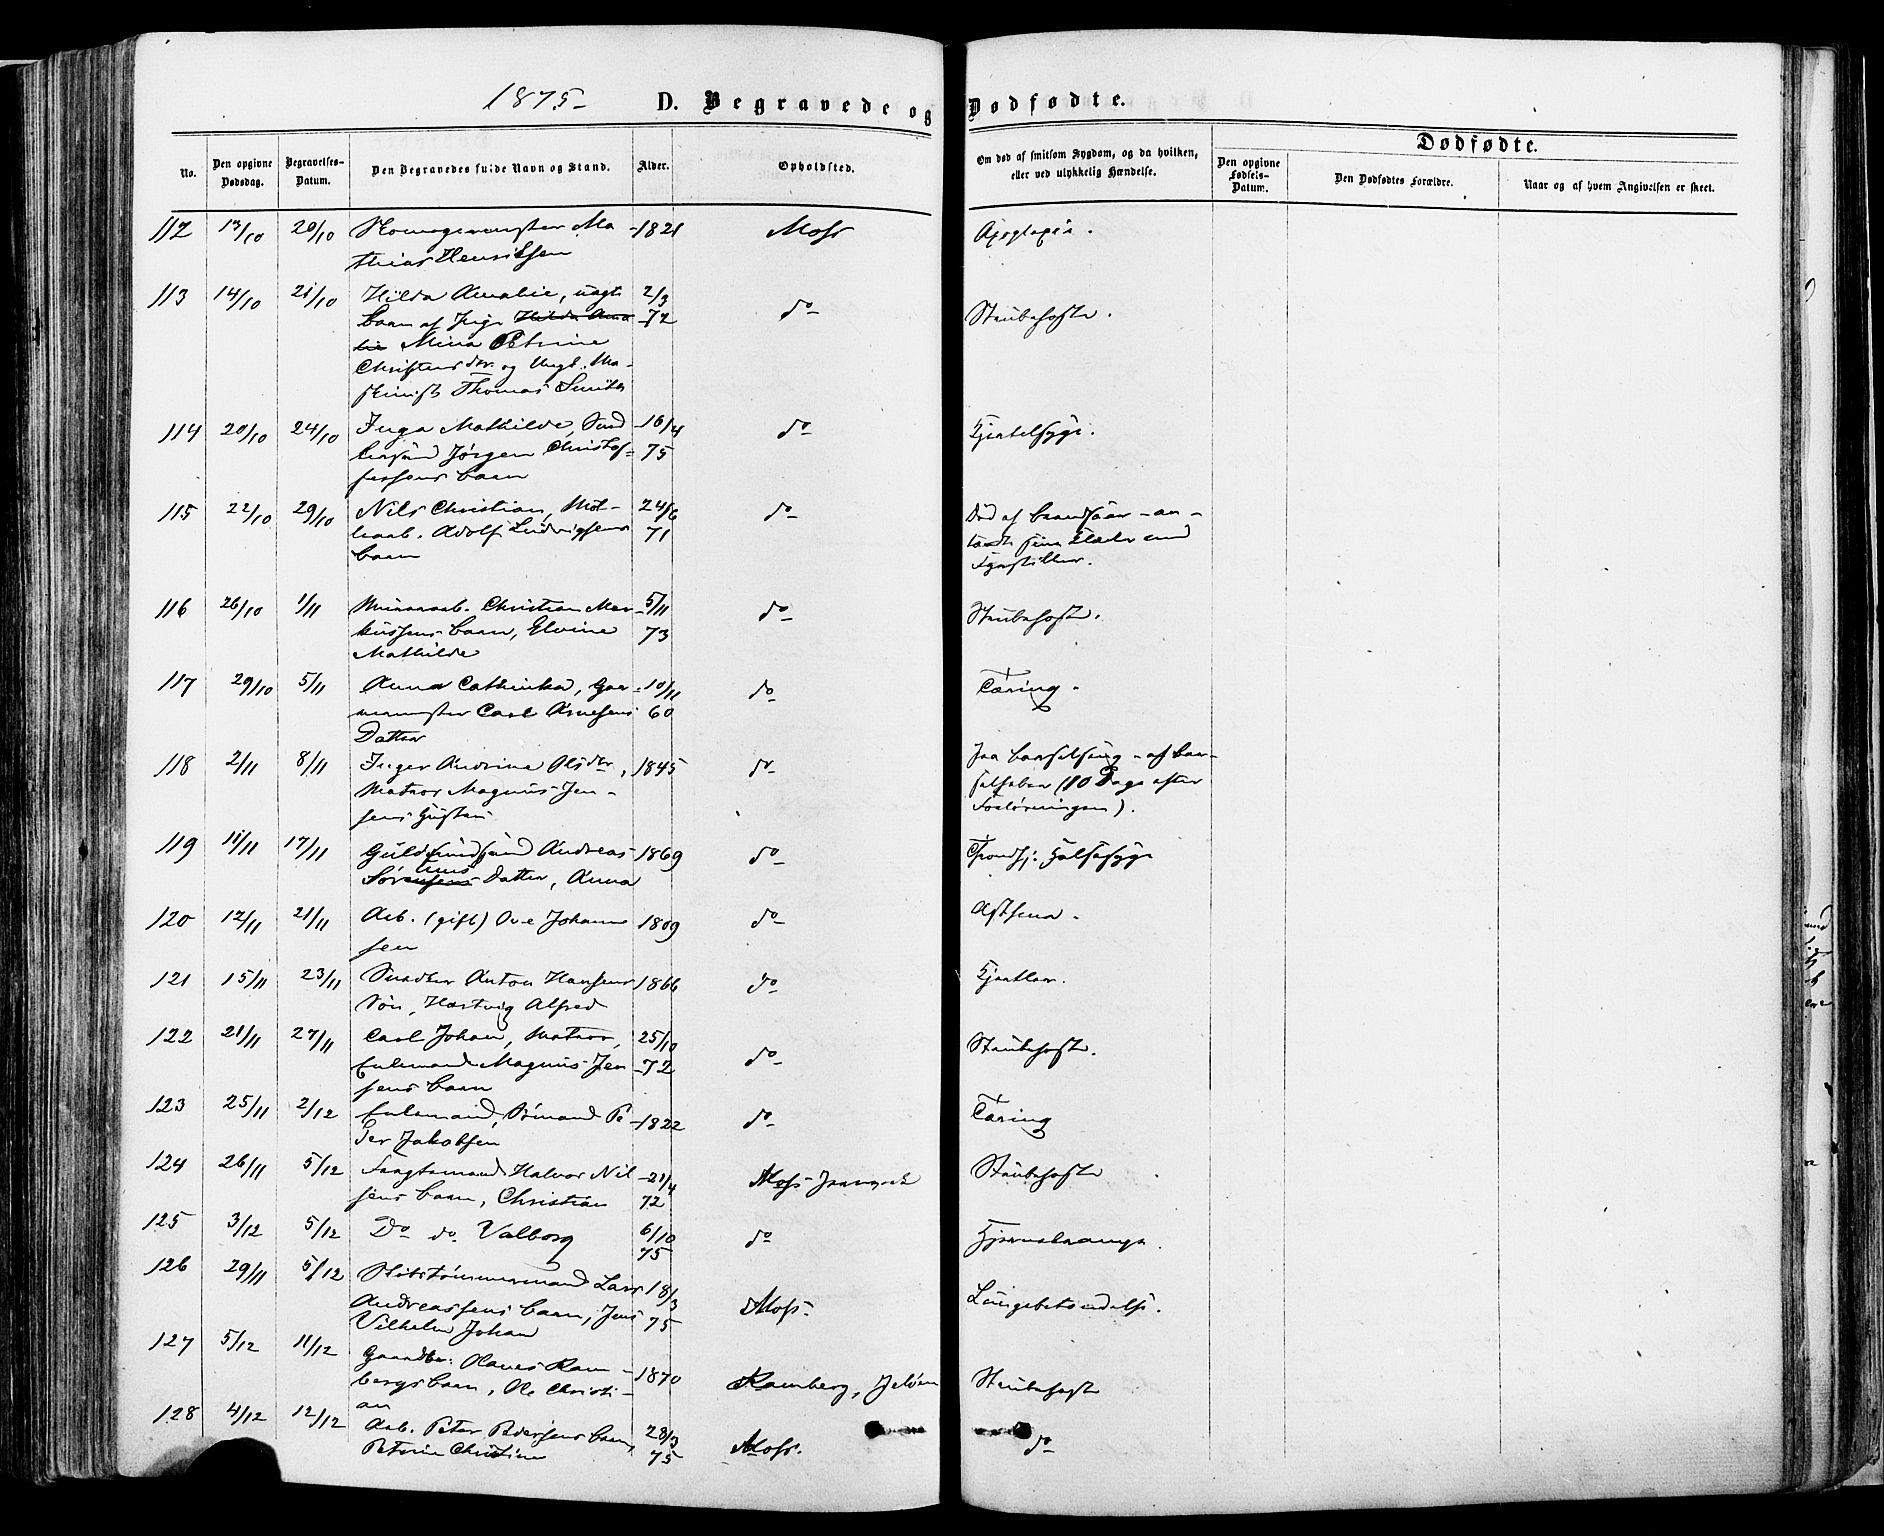 1875-
D. Begravede og Dødfødte.
Dødfødte.
No.
Den opgivne Dødsdag.
Begravelses-Datum.
Den Begravedes fulde Navn og Stand.
Alder.
Opholdsted.
Om død af smitsom Sygdom, og da hvilken, eller ved ulykkelig Hændelse.
Den opgivne Fødsels-Datum.
Den Dødfødtes Forældre.
Naar og af hvem Angivelsen er skeet.
112 17/10 20/10 Skomagermester Ma- 1821 Moss Apoplexia.
thias Henriksen
113 14/10 21/10 Hilda Amalie, uægte 2/3 do Strubehoste.
Barn af Pige Hilda Ama 72
lie Mina Petrine
Christensdtr. og Ungk. Ma-
skinist Thomas Smith
114 20/10 24/10 Inga Mathilde, 16/4 do Kjertelsyge.
Jørgen Christof- 75
fersens Barn
115 22/10 29/10 Nils Christian, 24/6 do Død af Brandsaar - an-
Adolf Ludvigsens 71 tændte sine Klæder med
Barn Fyrstikker.
116 26/10 1/11 Christian Mar- 5/11 do Strubehoste.
kussens Barn, Elvine 73
Mathilde
117 29/10 5/11 Anna Cathinka, Gar- 10/11 do Tæring.
vermester Carl Arnesens 60
Datter
118 2/11 8/11 Inger Andrine Olsdtr, 1845 do Paa Barselseng - af Bar-
Matros Magnus Jen- selfeber (10 Dage efter
sens Hustru Forløsningen).
119 11/11 17/11 Guldsmedsvend Andreas 1869 do Halssyge
Sørensens Datter, Anna
120 12/11 21/11 Arb. (gift) Ove Johann 1809 do Asthma.
sen
121 15/11 23/11 Snedker Anton Hansens 1866 do Kjertler.
Søn, Hartvig Alfred
122 21/11 27/11 Carl Johan, Matros, 25/10 do Strubehoste.
Enkemand Magnus Jen 72
sens Barn
123 25/11 2/12 Enkemand, Sømand Pe 1822 do Tæring
der Jakobsen
124 26/11 5/12 Halvor Nil 21/4 Moss Strubehoste
sens Barn, Christian 72
125 3/12 5/12 Do do Valborg 6/10 do Hjernekrampe.
75
126 29/11 5/12 Skibstømmermand Lars 18/3 Moss. Lungebetændelse.
Andreassens Barn, Jens 75
Vilhelm Johan
127 5/12 11/12 Gaardbr. Hanes Ram- 1870 Ramberg, Jeløen Strubehoste
bergs Barn, Ole Christi-
an
128 4/12 12/12 Arb. Peter Pedersens Barn, 28/3 Moss. do
Petrine Christine 75